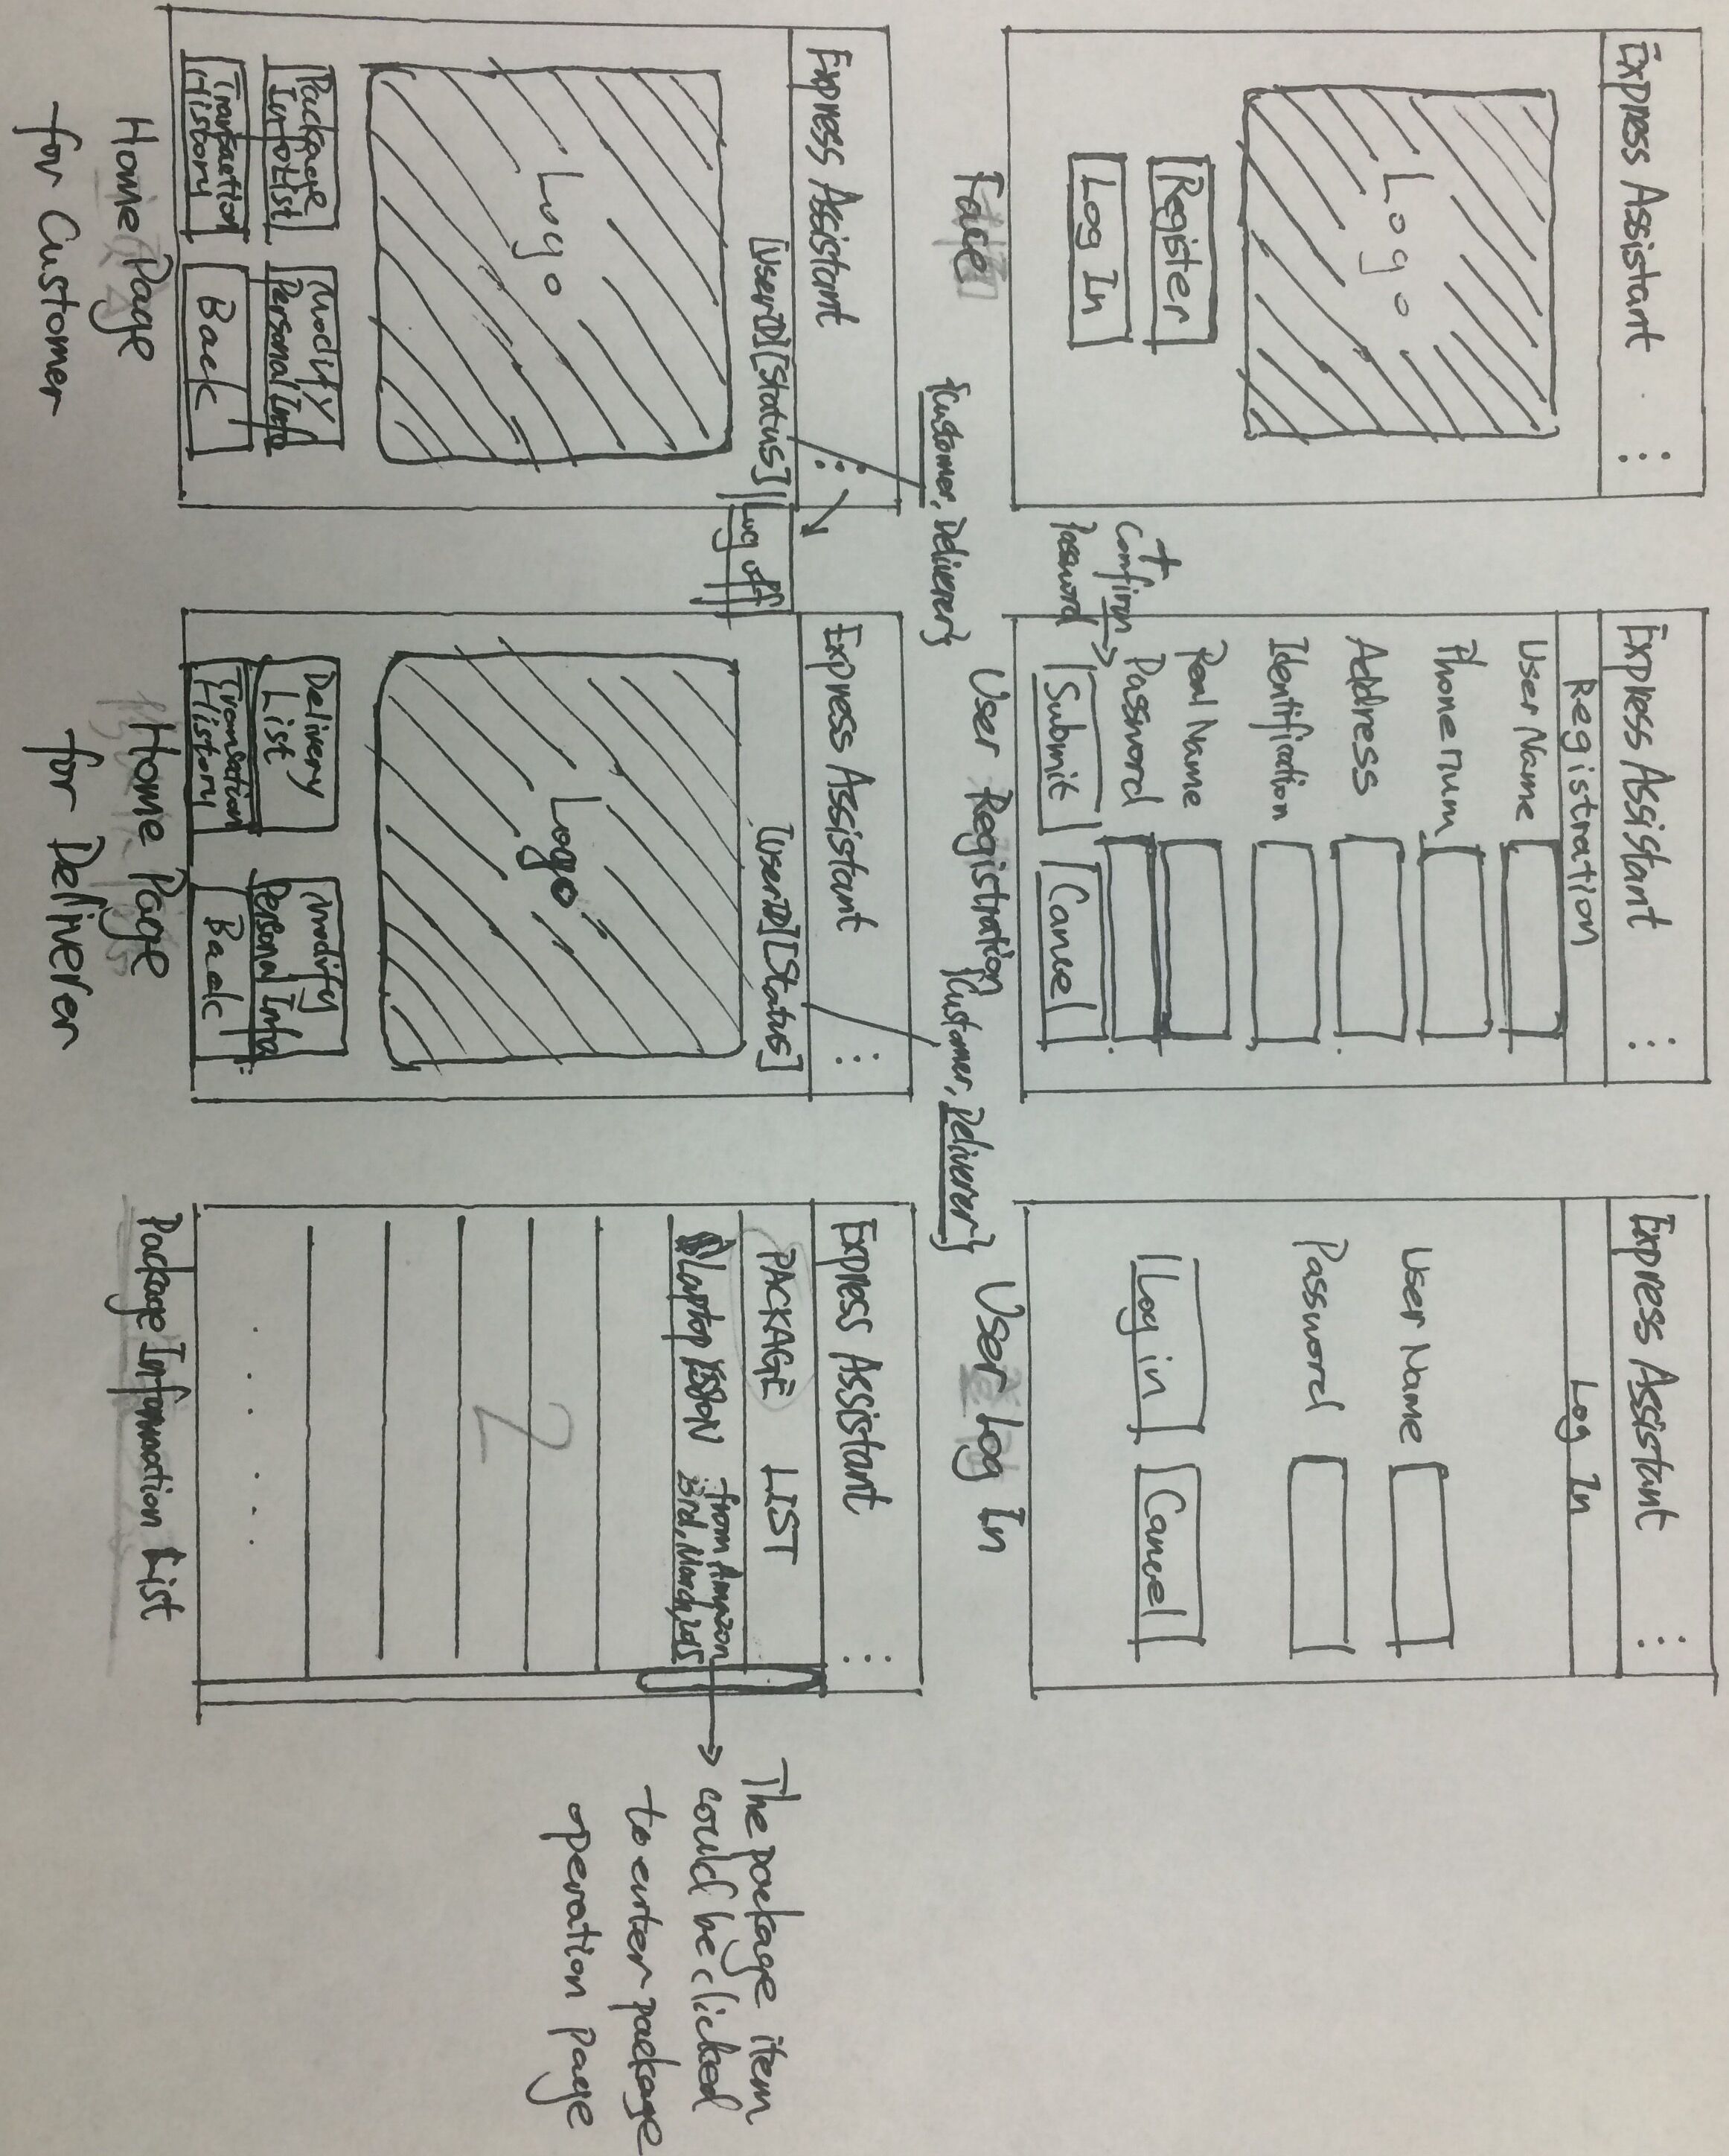 Express Assistant
Logo
Register
Log In
Face
Express Assistant
Registration
User Name
Phone num
Address
Identification
Real Name
Password
+
Confirm
Password
Submit
Cancel
User Registration
Express Assistant
Log In
User Name
Password
Log in
Cancel
User Log In
{Customer, Deliverer}
Express Assistant
[UserID][Status]
Log off
Logo
Package
Info List
Modify
Personal Info
Transaction
History
Back
Home Page
for Customer
{Customer, Deliverer}
Express Assistant
[UserID][Status]
Logo
Delivery
List
Modify
Personal Info
Transaction
History
Back
Home Page
for Deliverer
Express Assistant
PACKAGE LIST
Laptop from Amazon
3rd, March, 2015
2
Package Information List
The package item
could be clicked
to enter package
operation page